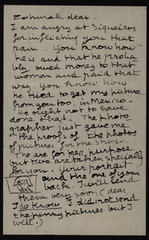 Ephurall dear.
I am angry at Siqueiros
for inflicting you that
pain. You know how
he is and that he proba
bly owed money to that
woman and paid that
way. You know how
he tried to get my picture
from you too, in Mexico.
He ought not to have
done that. The photo
grapher just gave me
the proofs of the photos
of pictures for the show.
The one for her, purpose
but taken specially
for you. Your portrait
and the one of your
back. I will send
them very soon, dear.
I did not send
the penny pictures but I
will.)